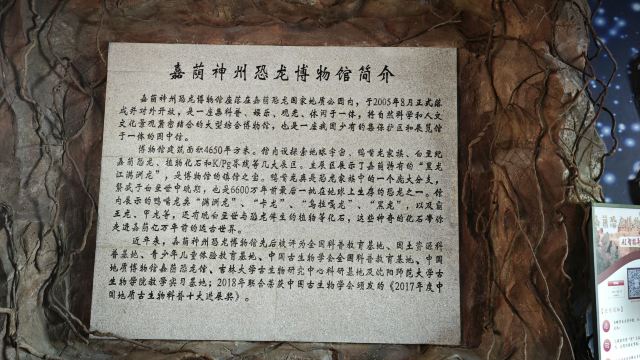 嘉荫神州恐龙博物馆简介
嘉荫神州恐龙博物馆座落在嘉荫恐龙国家地质公园内，于2005年8月正式落
成并对外开放，是一座集科普、娱乐、观光、休闲于一体，将自然科学和人文
文化景观紧密结合的大型综合博物馆，也是一座我国少有的集保护区和展览馆
于一体的园中馆。
博物馆建筑面积4650平方米。馆内设探索地球宇宙、鸭嘴龙家族、白垩纪
嘉荫恐龙、植物化石和K/Pg界线等几大展区。主展区展示了嘉荫特有的“黑龙
江满洲龙”，是博物馆的镇馆之宝。鸭嘴龙类是恐龙家族中的一个庞大分支，
繁盛于白垩世中晚期，也是6600万年前最后一批在地球上生存的恐龙之一。馆
内展示的鸭嘴龙类“满洲龙”、“卡龙”、“乌拉嘎龙”、“黑龙”，以及霸
王龙、甲龙等，还有晚白垩世与恐龙伴生的植物等化石，这些神奇的化石带你
走进嘉荫亿万年前的远古世界。
近年来，嘉荫神州恐龙博物馆先后被评为全国科普教育基地、国土资源科
普基地、青少年儿童体验教育基地、中国古生物学会全国科普教育基地、中国
地质博物馆嘉荫恐龙馆、吉林大学古生物研究中心科研基地及沈阳师范大学古
生物学院教学实习基地；2018年联合荣获中国古生物学会颁发的《2017年度中
国地质古生物科普十大进展奖》。